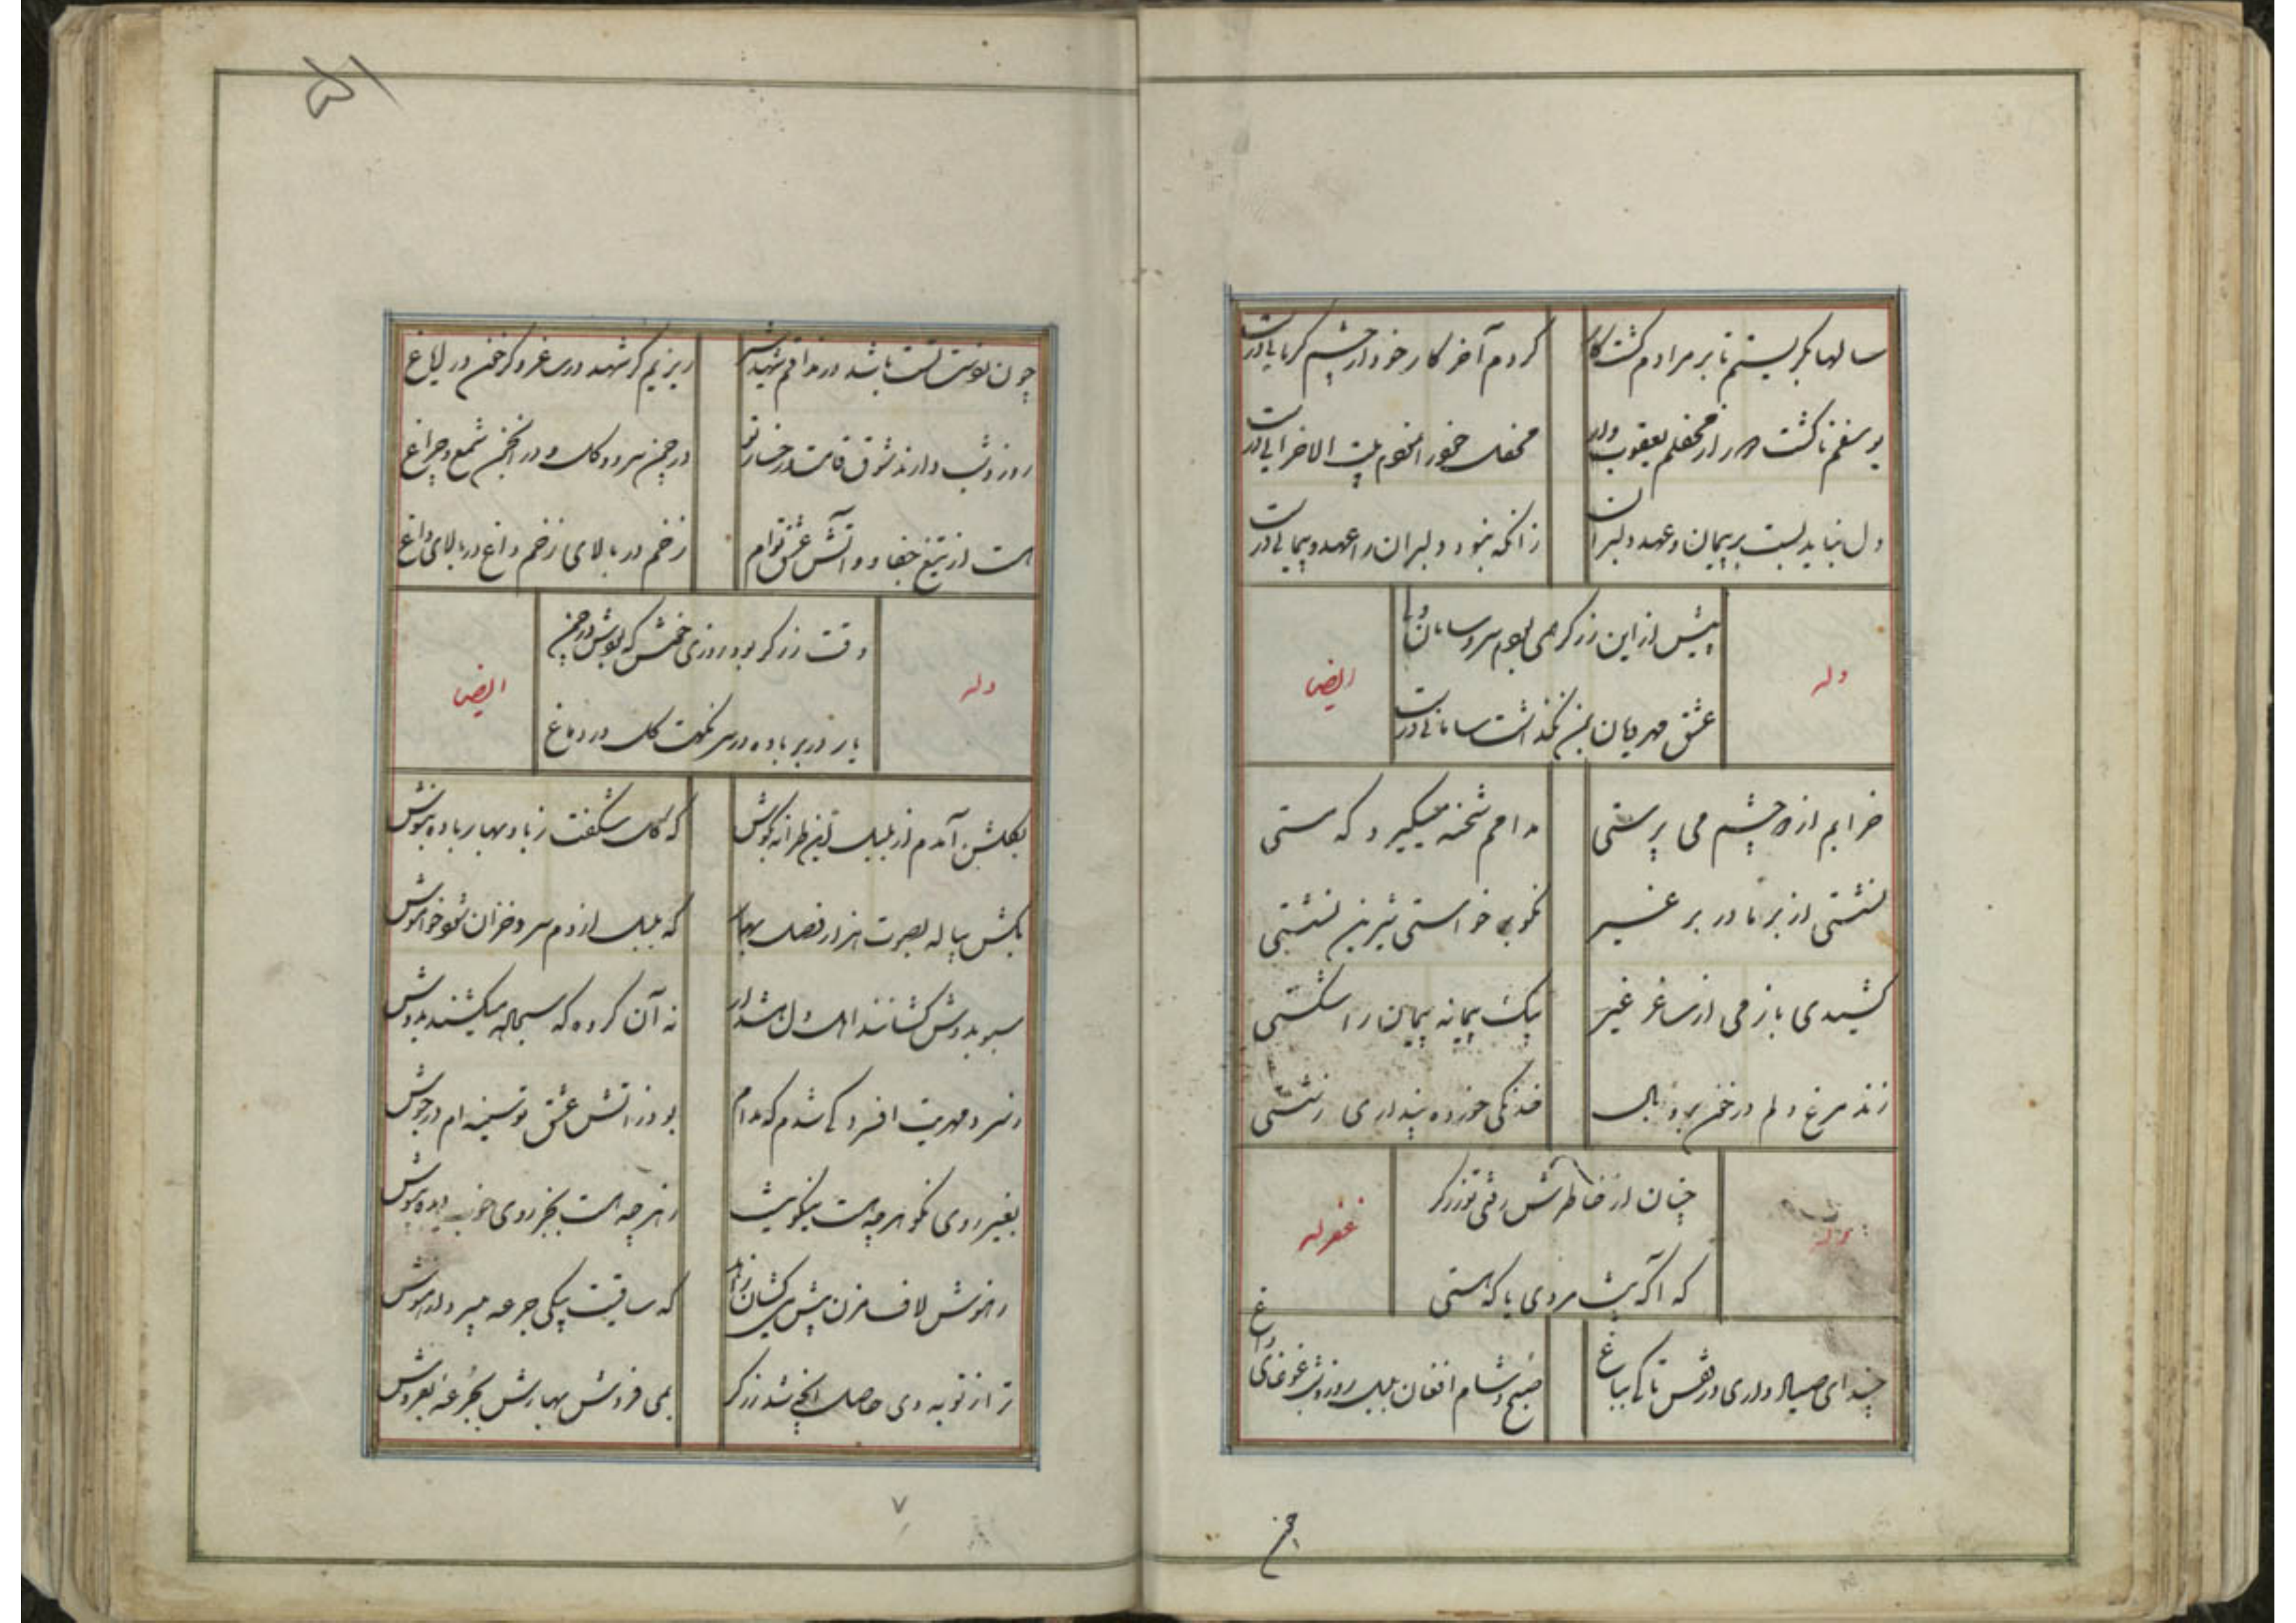 سالها بگریستم تا بر مرادم گشت کار
کردم آخر کار خود از چشم گریانی درست
یوسفم تا گشت دور از محفلم یعقوب وار
محفلی در خورد انخوم بیت الاحزانی درست
دل نباید بست بر پیمان و عهد دلبران
زانکه نبود دلبران را عهد و پیمانی درست
وله
پیش از این زرگر همی بودم سر و سامان
عشق مهرویان بمن نگذاشت سامانی درست
ایضا
خرابم از دو چشم می پرستی
مدامم شحنه میگیرد که مستی
نشستی از بر ما در بر غیر
نکو برخواستی شیرین نشستی
کشیدی باز می از ساغر غیر
بیک پیمانه پیمان را شکستی
زند مرغ دلم در خون پر و بال
خدنگی خورده پنداری ز شستی
چنان از خاطرش رفتی تو زرگر
که آگه نیست مردی یا که هستی
غفرله
چند ای صیاد داری در قفس تا کی بباغ
صبح و شام افغان بلبل روز و شب غوغای زاغ
چن
چون بدوست تست باشد در مذاقم شهد
ریز نیم گر شهد در ساغر و گر خون در ایاغ
روز و شب دارند شوق قامت و رخسار تو
در چمن سرو و گل و در انجمن شمع و چراغ
هست از تیغ جفا و و آتش عشق توام
زخم در بالای زخم و داغ در بالای داغ
وله
وقت زرگر بود روزی خوش که بودش در چمن
یار در بر باده در سر نکهت گل در دماغ
ایضا
بگلشن آمدم از بلبل این ترانه بگوش
که گل شگفت ز باد بهار باده بنوش
بکش پیاله بصوت هزار فصل بهار
که بلبل از دم سرد خزان شود خاموش
سبو بدوش کشانند اهل دل هشدار
نه آن گروه که سجاده میکشند بدوش
ز سرد مهریت افسرده کی شدم که مدام
بود ز آتش عشق تو سینه ام در جوش
بغیر روی نکو هر چه هست نیکو نیست
ز هر چه هست بجز روی خوب دیده بپوش
ز هوش لاف مزن پیش می کشان زاهد
که ساقیت بیکی جرعه میبرد از هوش
ترا ز توبه دی حاصل آنچه شد زرگر
بمی فروش بهارش بجرعه بفروش
۷